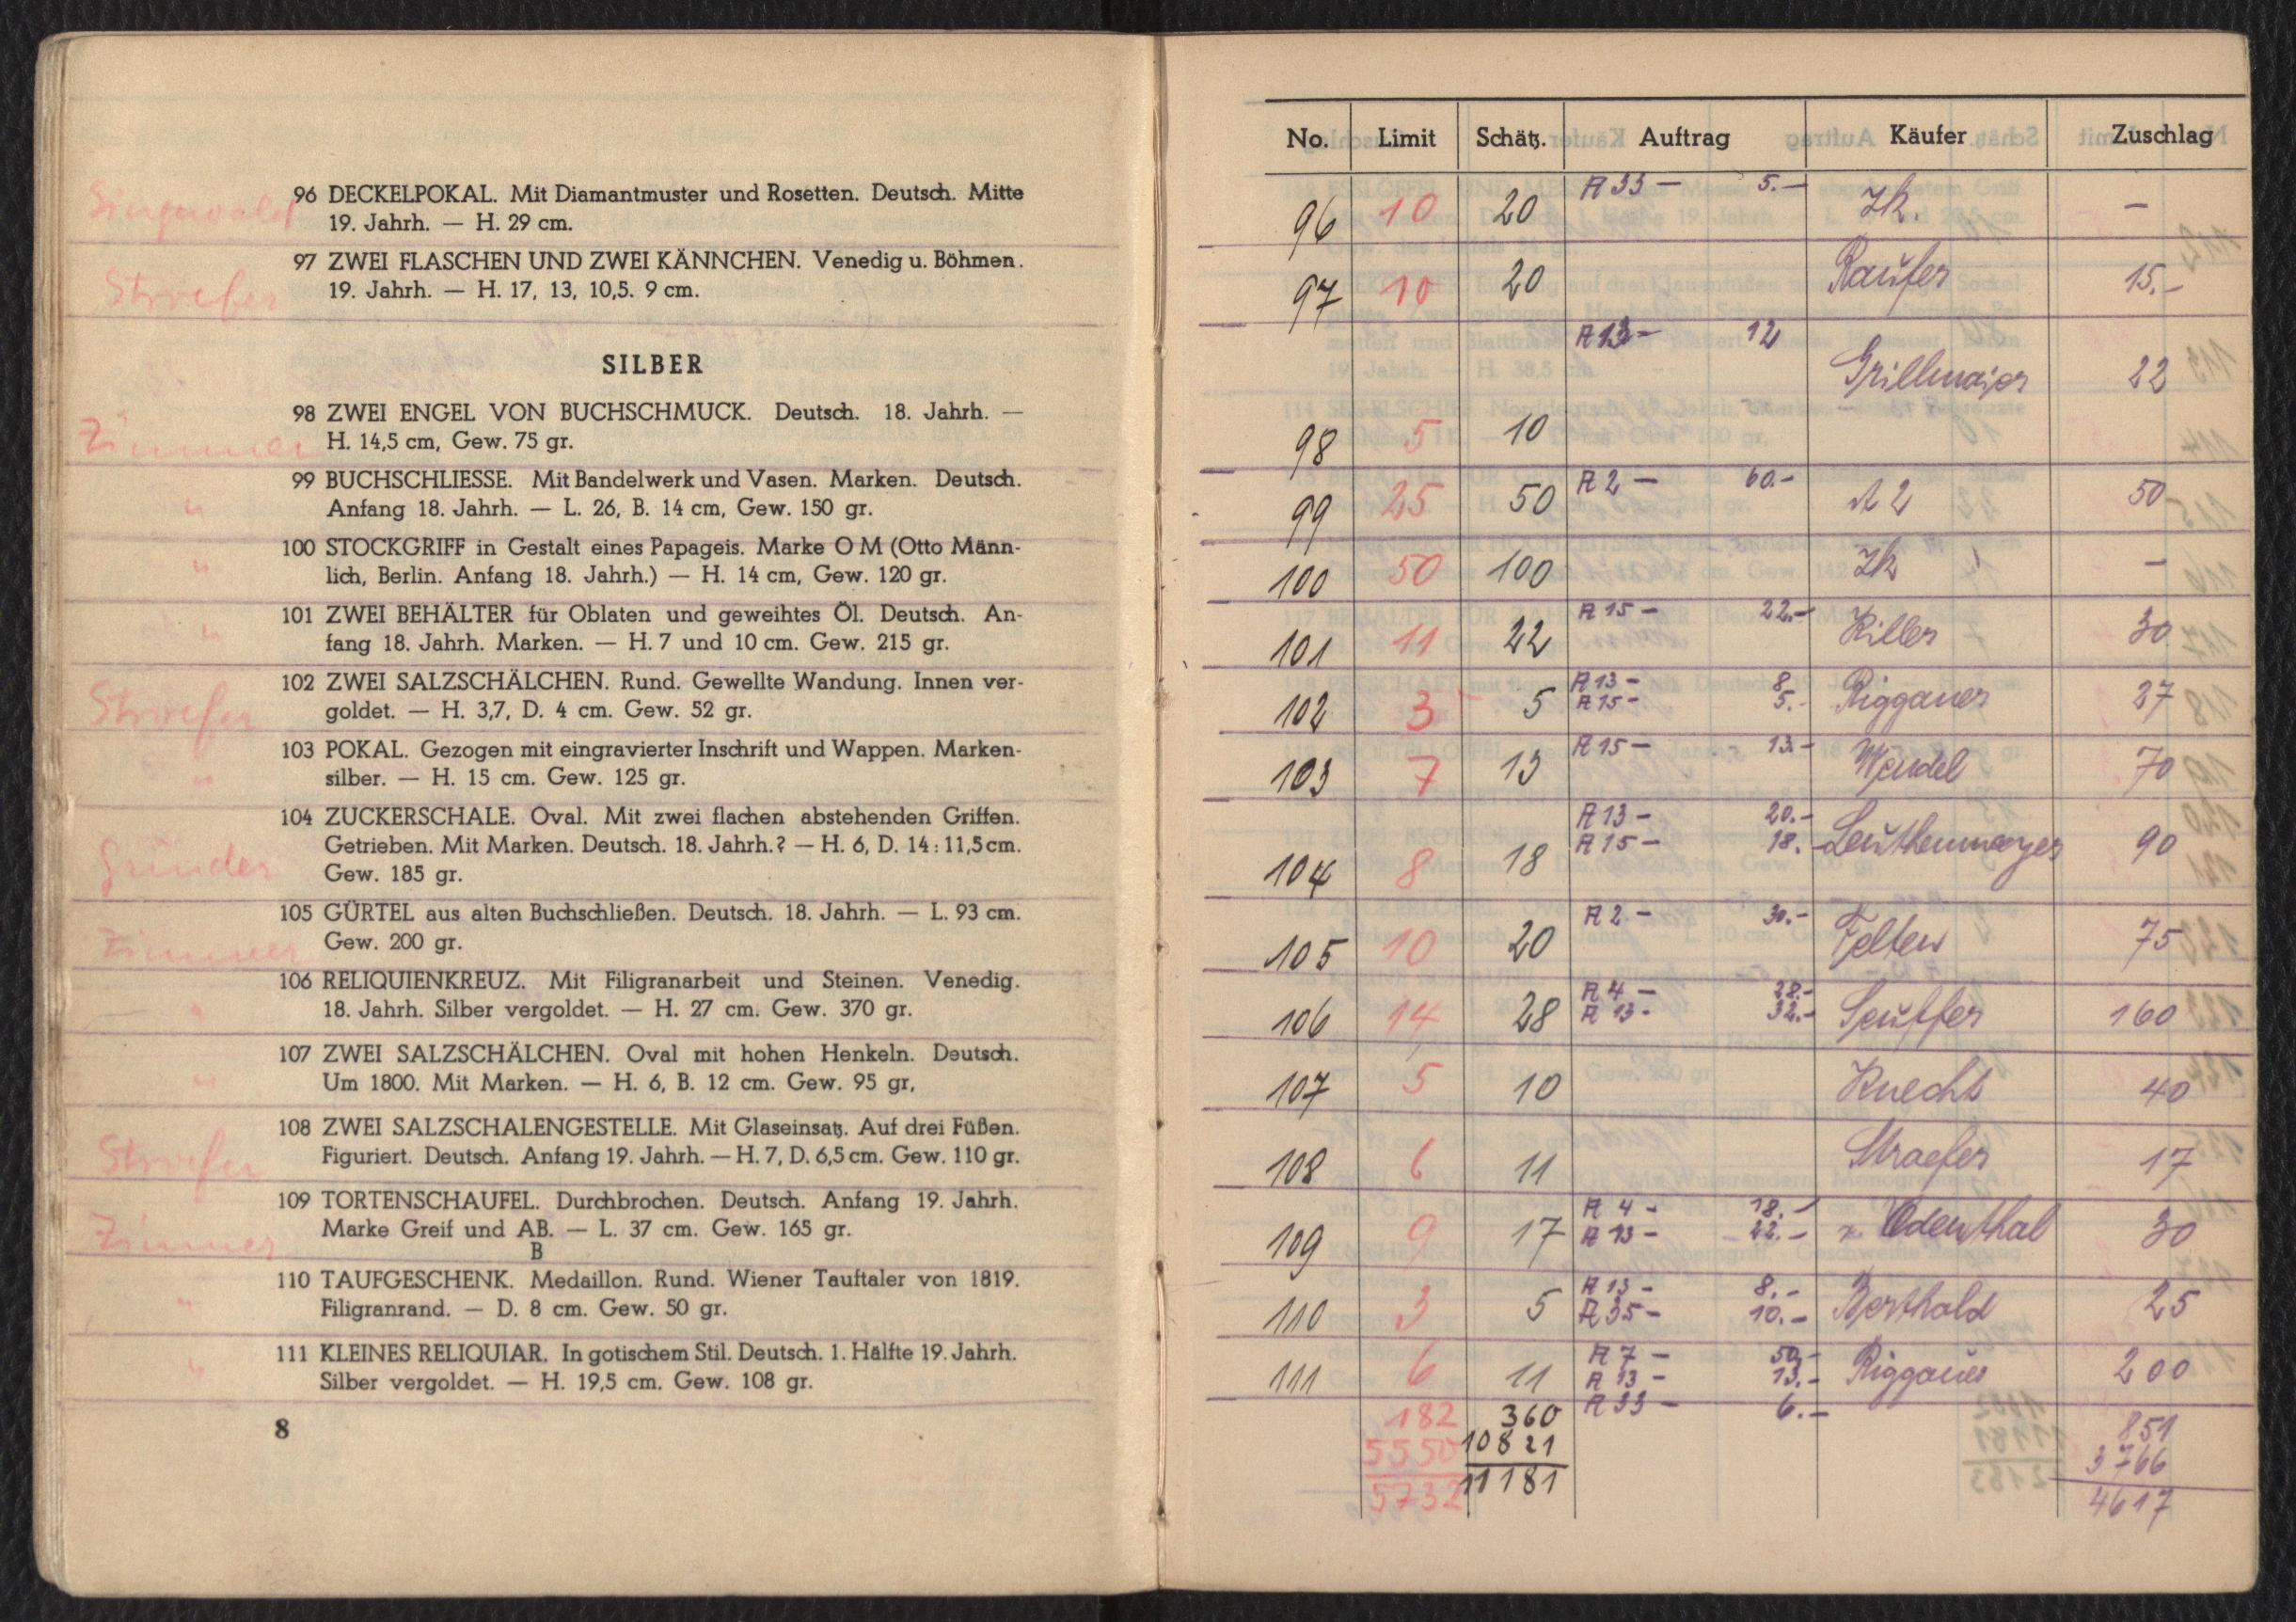 Singewald
96 DECKELPOKAL. Mit Diamantmuster und Rosetten. Deutsch. Mitte
19. Jahrh. — H. 29 cm.
97 ZWEI FLASCHEN UND ZWEI KÄNNCHEN. Venedig u. Böhmen.
Stroefer
19. Jahrh. — H. 17, 13, 10,5. 9 cm.
SILBER
98 ZWEI ENGEL VON BUCHSCHMUCK. Deutsch. 18. Jahrh. —
Zimmer
H. 14,5 cm, Gew. 75 gr.
99 BUCHSCHLIESSE. Mit Bandelwerk und Vasen. Marken. Deutsch.
" Anfang 18. Jahrh. — L. 26, B. 14 cm, Gew. 150 gr.
100 STOCKGRIFF in Gestalt eines Papageis. Marke O M (Otto Männ-
" lich, Berlin. Anfang 18. Jahrh.) — H. 14 cm, Gew. 120 gr.
101 ZWEI BEHÄLTER für Oblaten und geweihtes Öl. Deutsch. An-
" fang 18. Jahrh. Marken. — H. 7 und 10 cm. Gew. 215 gr.
102 ZWEI SALZSCHÄLCHEN. Rund. Gewellte Wandung. Innen ver-
Stroefer
goldet. — H. 3,7, D. 4 cm. Gew. 52 gr.
103 POKAL. Gezogen mit eingravierter Inschrift und Wappen. Marken-
" silber. — H. 15 cm. Gew. 125 gr.
104 ZUCKERSCHALE. Oval. Mit zwei flachen abstehenden Griffen.
Getrieben. Mit Marken. Deutsch. 18. Jahrh.? — H. 6, D. 14 : 11,5 cm.
Gründer
Gew. 185 gr.
105 GÜRTEL aus alten Buchschließen. Deutsch. 18. Jahrh. — L. 93 cm.
Zimmer
Gew. 200 gr.
106 RELIQUIENKREUZ. Mit Filigranarbeit und Steinen. Venedig.
" 18. Jahrh. Silber vergoldet. — H. 27 cm. Gew. 370 gr.
107 ZWEI SALZSCHÄLCHEN. Oval mit hohen Henkeln. Deutsch.
" Um 1800. Mit Marken. — H. 6, B. 12 cm. Gew. 95 gr,
108 ZWEI SALZSCHALENGESTELLE. Mit Glaseinsatz. Auf drei Füßen.
Stroefer
Figuriert. Deutsch. Anfang 19. Jahrh. — H. 7, D. 6,5 cm. Gew. 110 gr.
109 TORTENSCHAUFEL. Durchbrochen. Deutsch. Anfang 19. Jahrh.
Zimmer
Marke Greif und AB. — L. 37 cm. Gew. 165 gr.
B
110 TAUFGESCHENK. Medaillon. Rund. Wiener Tauftaler von 1819.
" Filigranrand. — D. 8 cm. Gew. 50 gr.
111 KLEINES RELIQUIAR. In gotischem Stil. Deutsch. 1. Hälfte 19. Jahrh.
" Silber vergoldet. — H. 19,5 cm. Gew. 108 gr.
8
No. Limit Schätz. Auftrag Käufer Zuschlag
96 10 20 A 33 — 5.— Zk. —
97 10 20 Raufer 15.—
A 13 — 12
98 5 10 Grillmaier 22
99 25 50 A 2 — 60.— A 2 50
100 50 100 Zk —
101 11 22 A 15 — 22.— Killer 30
102 3 5 A 13 — 8. Riggauer 27
A 15 — 5.
103 7 13 A 15 — 13.— Wendel 70
104 8 18 A 13 — 20.— Leuthenmayer 90
A 15 — 18.
105 10 20 A 2 — 30.— Felten 75
106 14 28 A 4 — 28.— Seuffer 160
A 13 — 32.—
107 5 10 Knecht 40
108 6 11 Straefer 17
109 9 17 A 4 — 18.— x Odenthal 30
A 13 — 22.—
110 3 5 A 13 — 8.— Berthold 25
A 35 — 10.—
111 6 11 A 7 — 50.— Riggauer 200
A 13 — 13.—
A 33 — 6.—
182 360 851
5550 10821 3766
5732 11181 4617